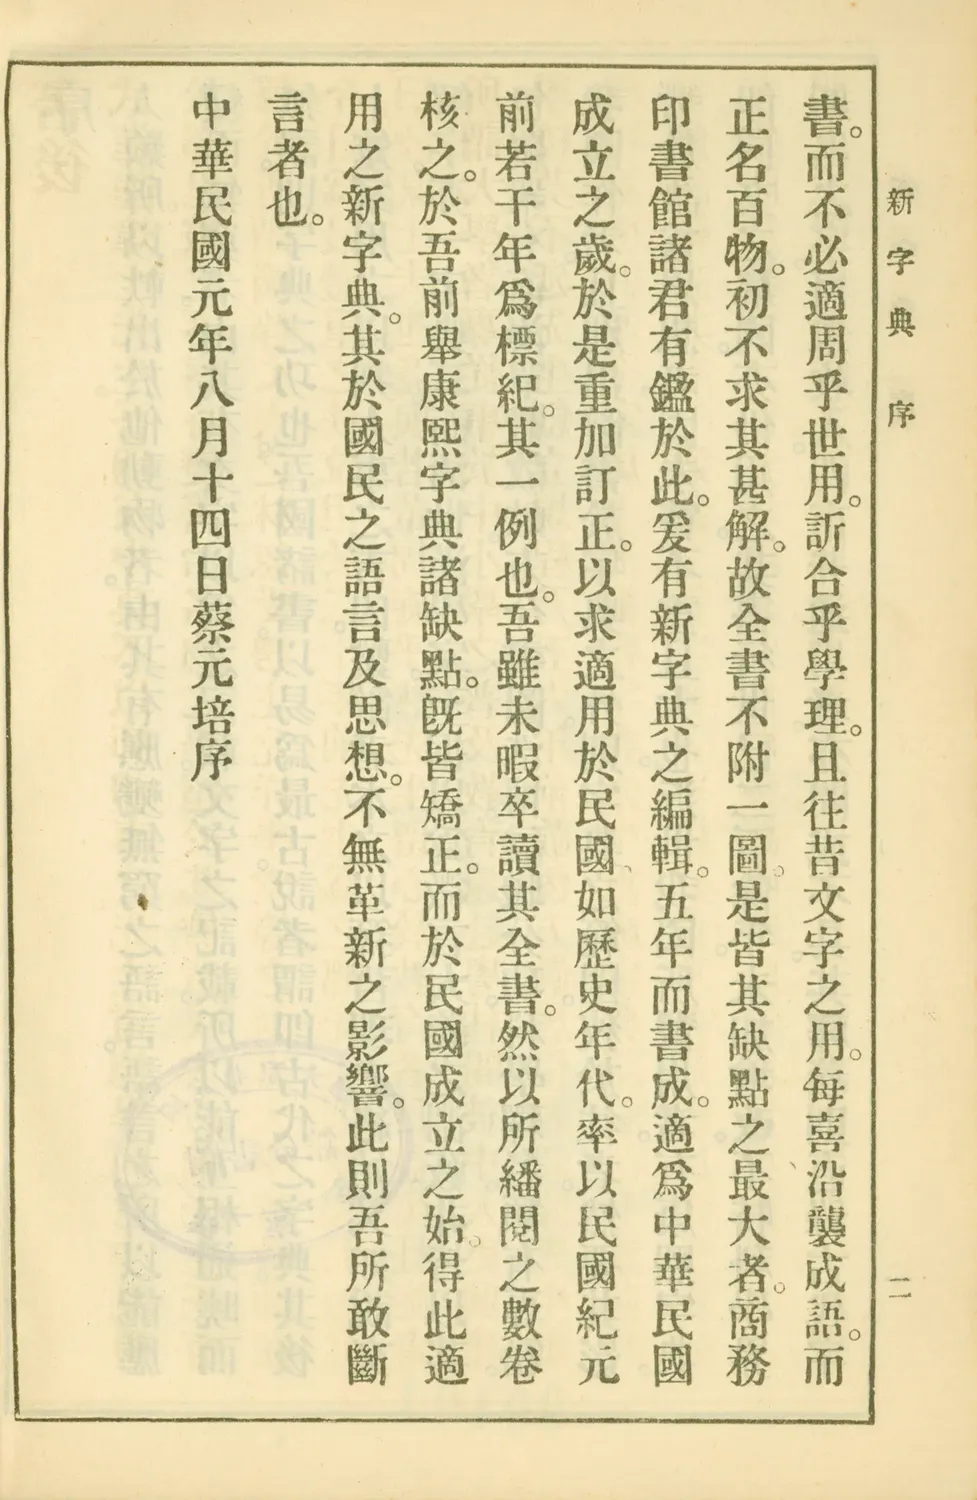 新字典 序
二
書。而不必適周乎世用。訢合乎學理。且往昔文字之用。每喜沿襲成語。而
正名百物。初不求其甚解。故全書不附一圖。是皆其缺點之最大者。商務
印書館諸君有鑑於此。爰有新字典之編輯。五年而書成。適爲中華民國
成立之歲。於是重加訂正。以求適用於民國、如歷史年代。率以民國紀元
前若干年爲標紀。其一例也。吾雖未暇卒讀其全書。然以所繙閱之數卷
核之。於吾前舉康熙字典諸缺點。旣皆矯正。而於民國成立之始。得此適
用之新字典。其於國民之語言及思想。不無革新之影響。此則吾所敢斷
言者也。
中華民國元年八月十四日蔡元培序